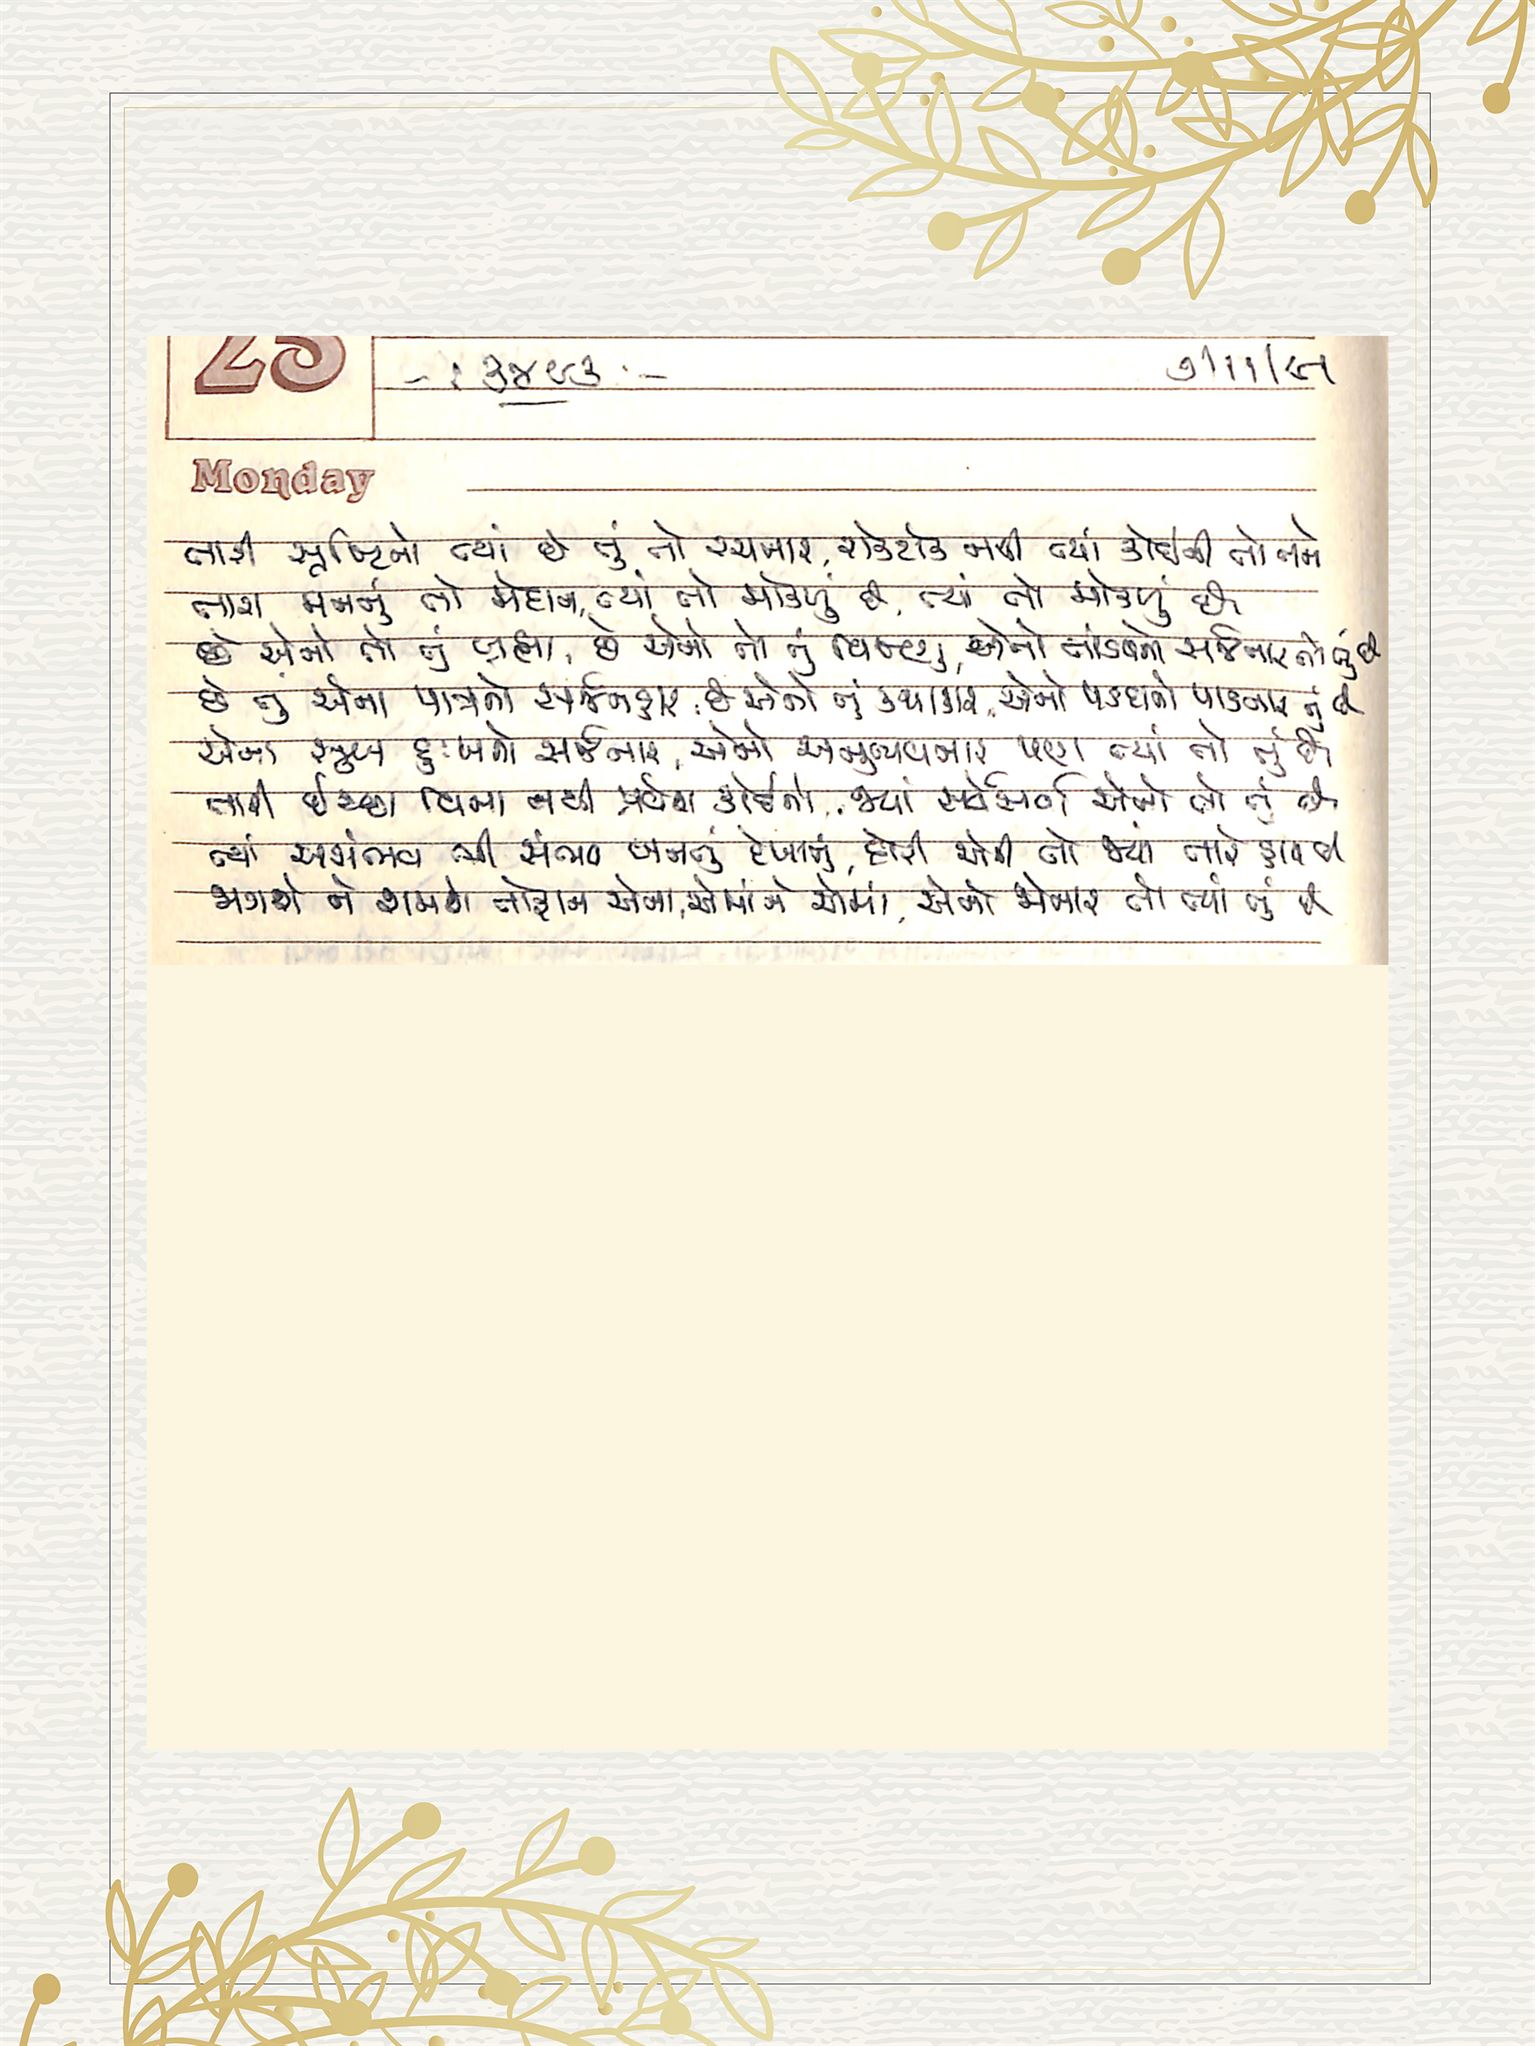 25
-: ૩૪૯૩ :-
૭/૧૧/૯૧
Monday
તારી સૃષ્ટિનો ત્યાં છે તું તો રચનાર, રોકટોક નથી ત્યાં કોઈની તો તને
તારા મનનું તો મેદાન, ત્યાં તો મોકળું છે, ત્યાં તો મોકળું છે
છે એનો તો તું બ્રહ્મા, છે એનો તો તું વિષ્ણુ, એનો તાંડવનો સર્જનાર તો તું છે
છે તું એના પાત્રનો સર્જનકાર, છે એનો તું કથાકાર, એનો પડદાનો પાડનાર તું છે
એના સુખ દુઃખનો સર્જનાર, એનો અનુભવનાર પણ ત્યાં તો તું છે
તારી ઈચ્છા વિના નથી પ્રવેશ કોઈનો, જ્યાં સર્વેસર્વા એનો તો તું છે
ત્યાં અસંભવ ભી સંભવ બનતું દેખાતું, દોરી એની તો જ્યાં તારે હાથ છે
ભગાશે ને શમશે તોફાન એના, એમાં ને એમાં, એનો જોનાર તો ત્યાં તું છે